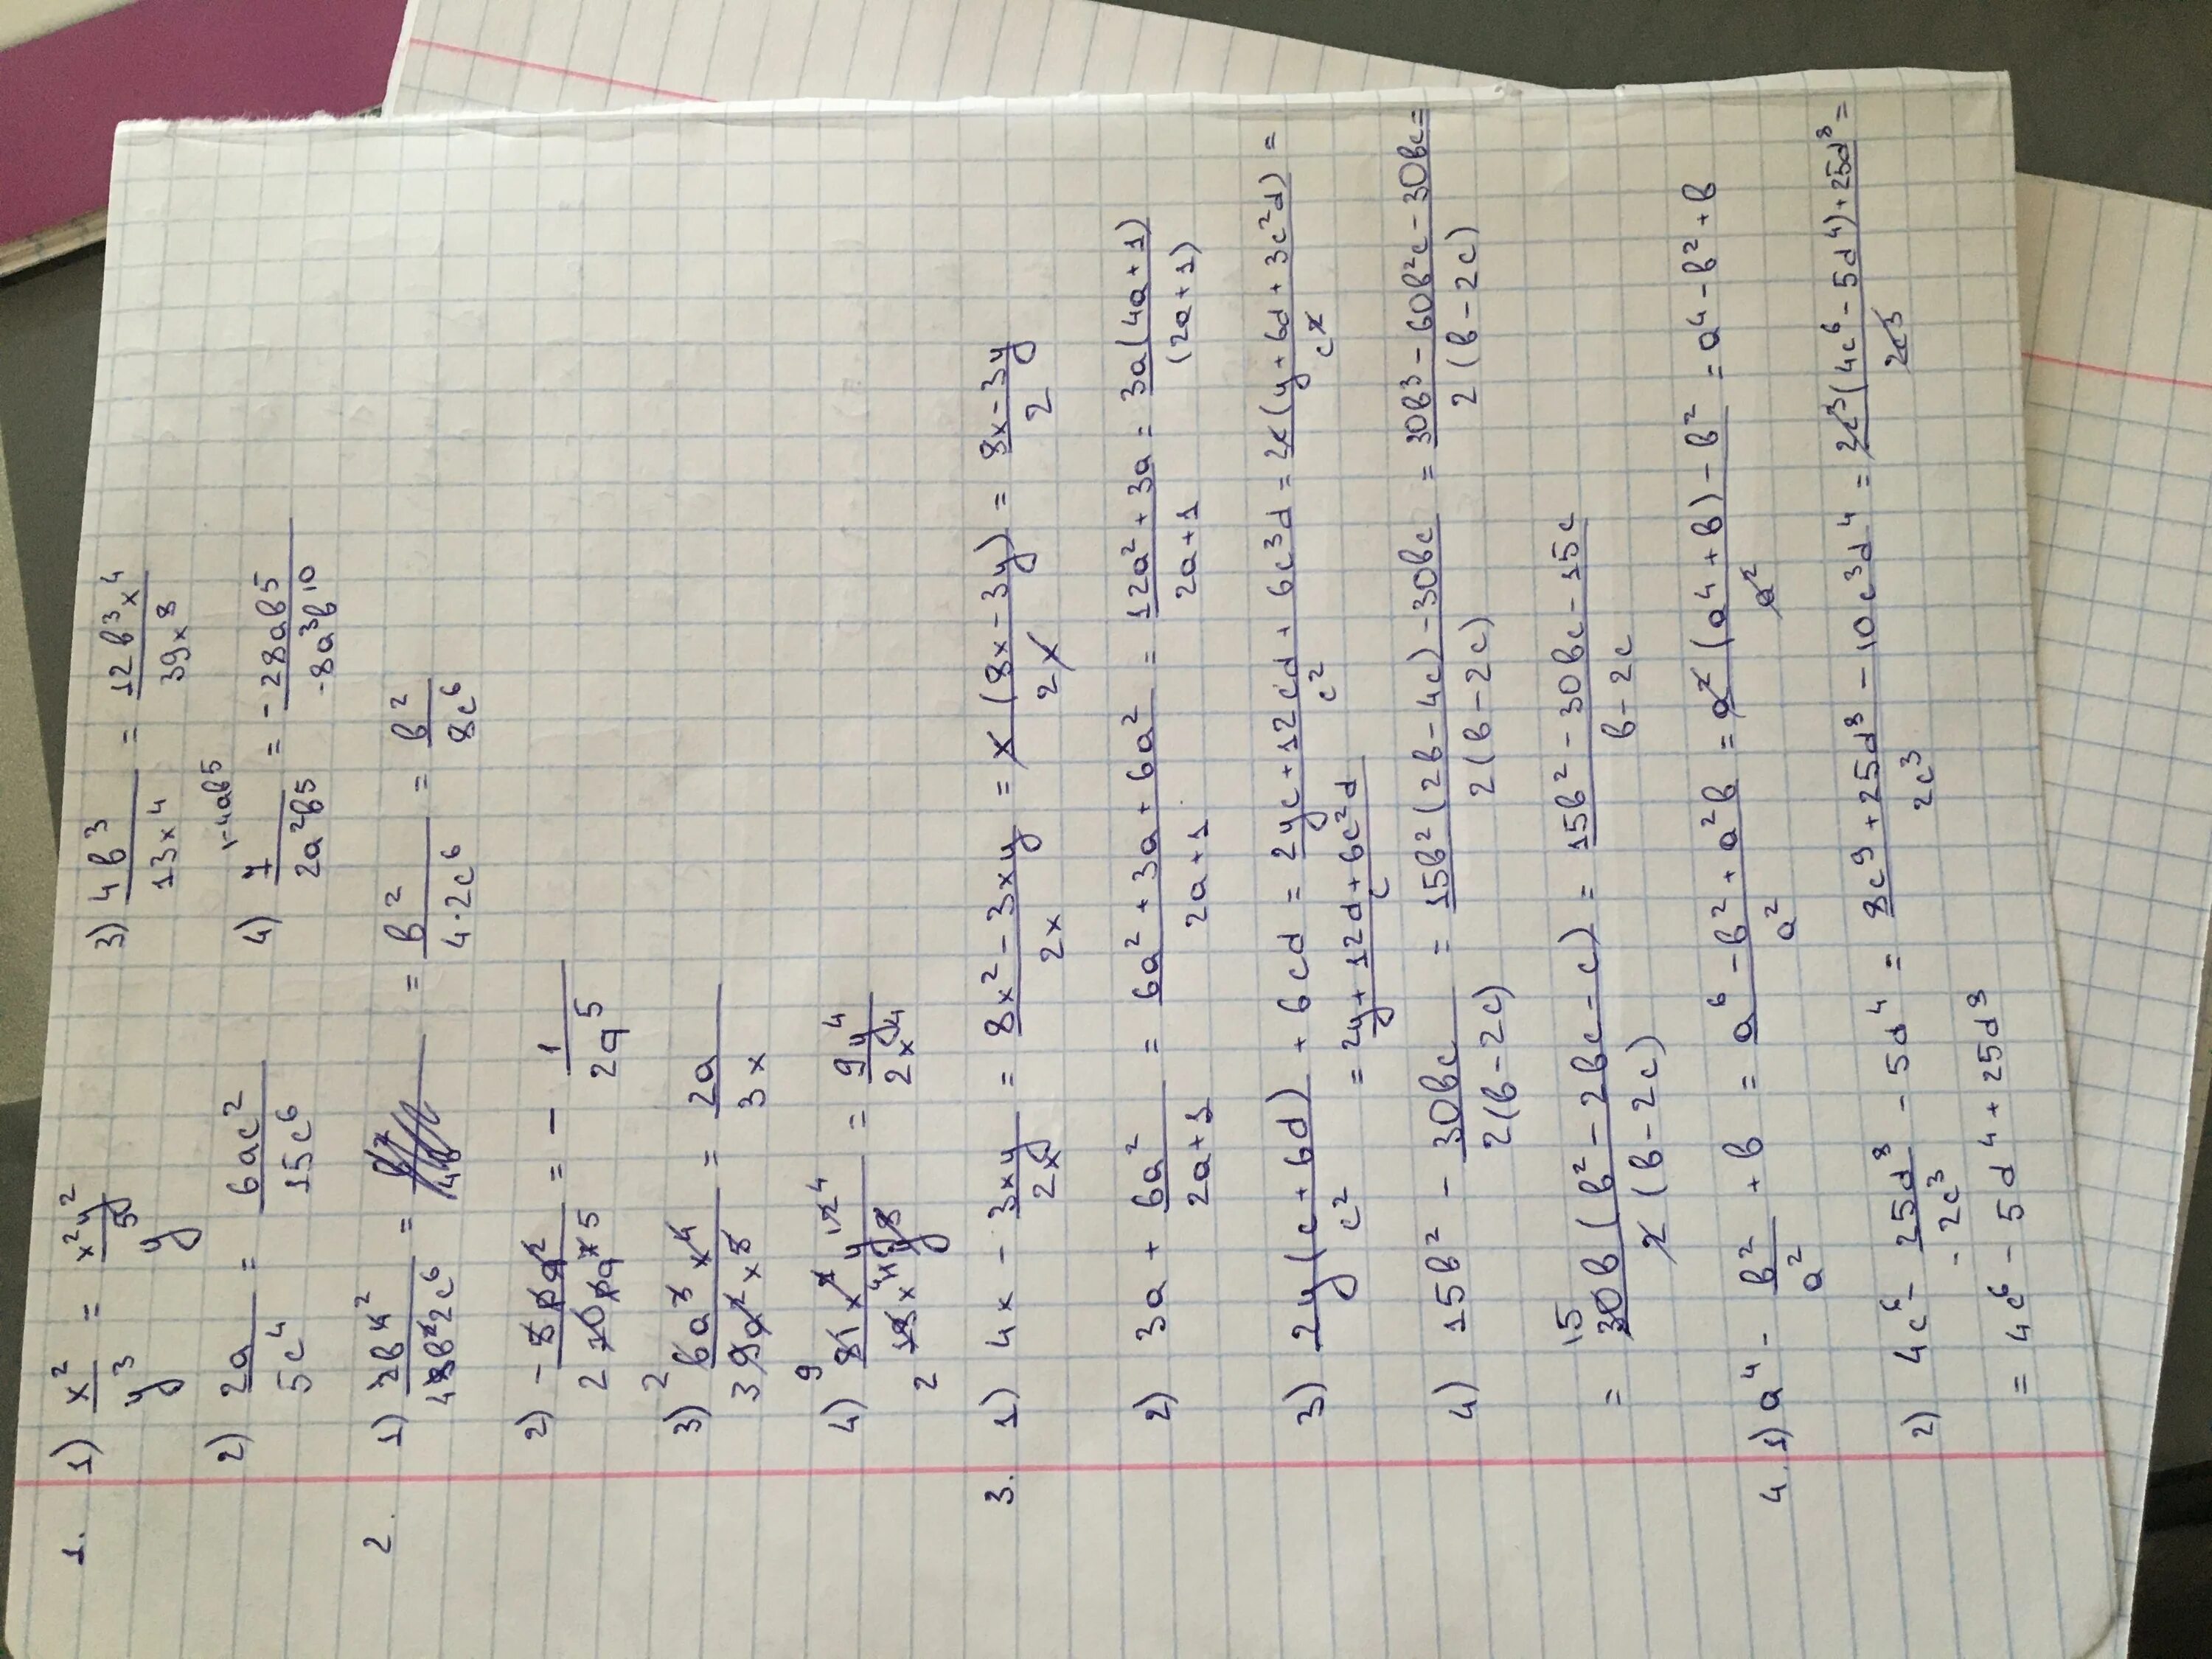 1. 1) x²/y³ = x²y²/y⁵ 3) 4b³/13x⁴ = 12b³x⁴/39x⁸
2) 2a/5c⁴ = 6ac²/15c⁶ 4) 7/2a²b⁵ = -28ab⁵/-8a³b¹⁰
2. 1) = b²/4·2c⁶ = b²/8c⁶
2) = - 1/2a⁵
3) = 2a/3x
4) = 9y⁴/2x⁴
3. 1) 4x - 3xy/2x = 8x² - 3xy/2x = x(8x - 3y)/2x = 8x - 3y/2
2) 3a + 6a²/2a+1 = 6a² + 3a + 6a²/2a+1 = 12a² + 3a/2a+1 = 3a(4a+1)/(2a+1)
3) 2y(c+6d)/c² + 6cd = 2yc + 12cd + 6c³d/c² = 2c(y + 6d + 3c²d)/c² =
= 2y + 12d + 6c²d/c
4) 15b² - 30bc/2(b-2c) = 15b²(2b-4c) - 30bc/2(b-2c) = 30b³ - 60b²c - 30bc/2(b-2c) =
= 30b(b² - 2bc - c)/2(b-2c) = 15b² - 30bc - 15c/b-2c
4. 1) a⁴ - b²/a² + b = a⁶ - b² + a²b/a² = a²(a⁴+b) - b²/a² = a⁴ - b² + b
2) 4c⁶ - 25d⁸/-2c³ - 5d⁴ = 8c⁹ + 25d⁸ - 10c³d⁴/2c³ = 2c³(4c⁶ - 5d⁴) + 25d⁸/2c³ =
= 4c⁶ - 5d⁴ + 25d⁸